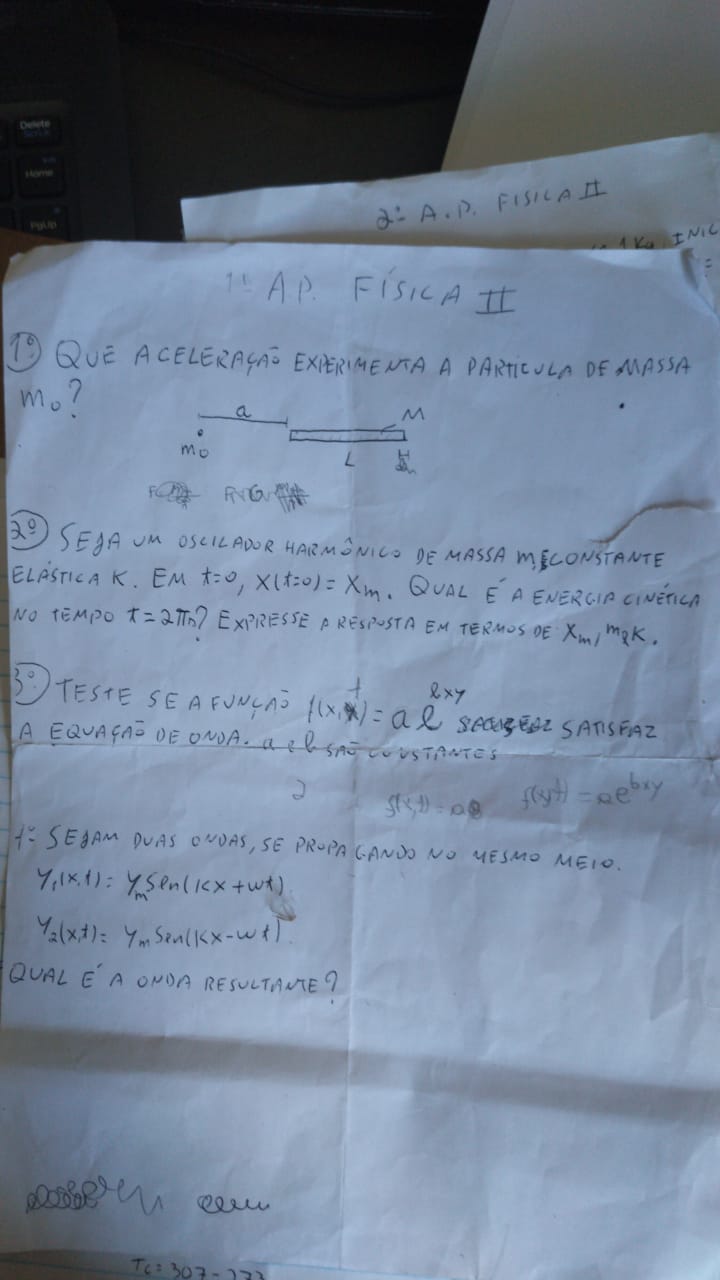 Delete
Home
PgUp
2º A.P. FISICA II
1 Kg, INIC
1º AP. FÍSICA II
1º) QUE ACELERAÇÃO EXPERIMENTA A PARTÍCULA DE MASSA
m₀?
a
M
m₀
L
2º) SEJA UM OSCILADOR HARMÔNICO DE MASSA m, E CONSTANTE
ELÁSTICA K. EM t=0, X(t=0) = Xm. QUAL É A ENERGIA CINÉTICA
NO TEMPO t=2πn? EXPRESSE A RESPOSTA EM TERMOS DE Xm, m e K.
3º) TESTE SE A FUNÇÃO f(x,t) = a e^bxy SATISFAZ
A EQUAÇÃO DE ONDA. a e b SÃO CONSTANTES
2
f(x,t) = ae
f(x,t) = ae^bxy
SEJAM DUAS ONDAS, SE PROPAGANDO NO MESMO MEIO.
Y₁(x,t) = Ym Sen(Kx+wt).
Y₂(x,t) = Ym Sen(Kx-wt).
QUAL É A ONDA RESULTANTE?
Tc = 307-273